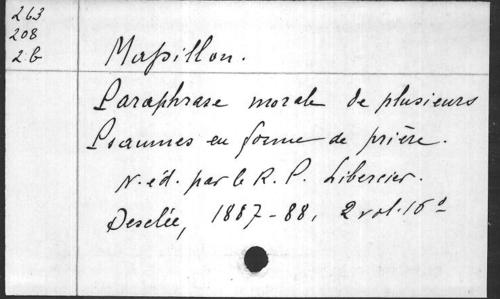 263
208
2 b
Massillon.
Paraphrase morale de plusieurs
Psaumes en forme de prière.
N. éd. par le R. P. Libercier.
Desclée, 1887-88, 2 vol. 16°